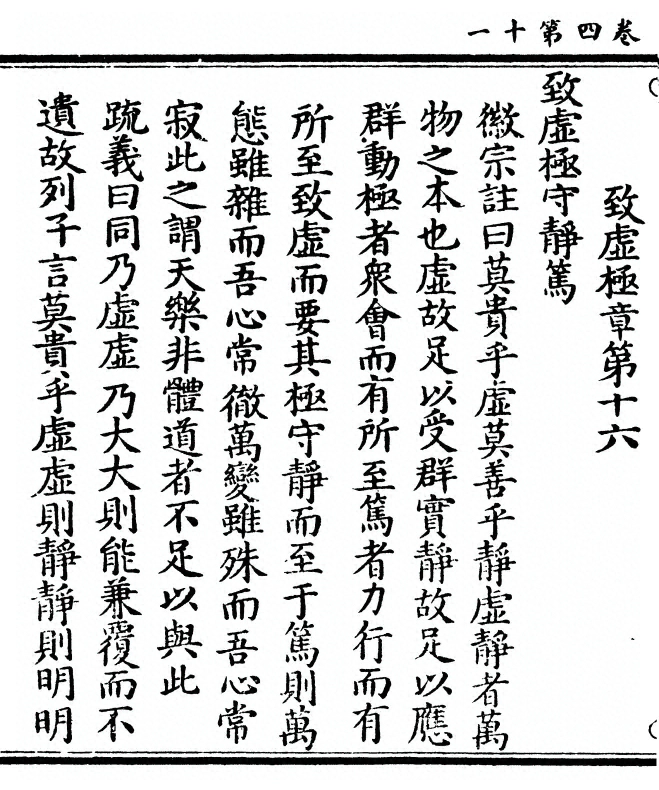 卷四第十一
致虛極章第十六
致虛極守靜篤
徽宗註曰莫貴乎虛莫善乎靜虛靜者萬
物之本也虛故足以受群實靜故足以應
群動極者衆會而有所至篤者力行而有
所至致虛而要其極守靜而至于篤則萬
態雖雜而吾心常徹萬變雖殊而吾心常
寂此之謂天樂非體道者不足以與此
疏義曰同乃虛虛乃大大則能兼覆而不
遺故列子言莫貴乎虛虛則靜靜則明明